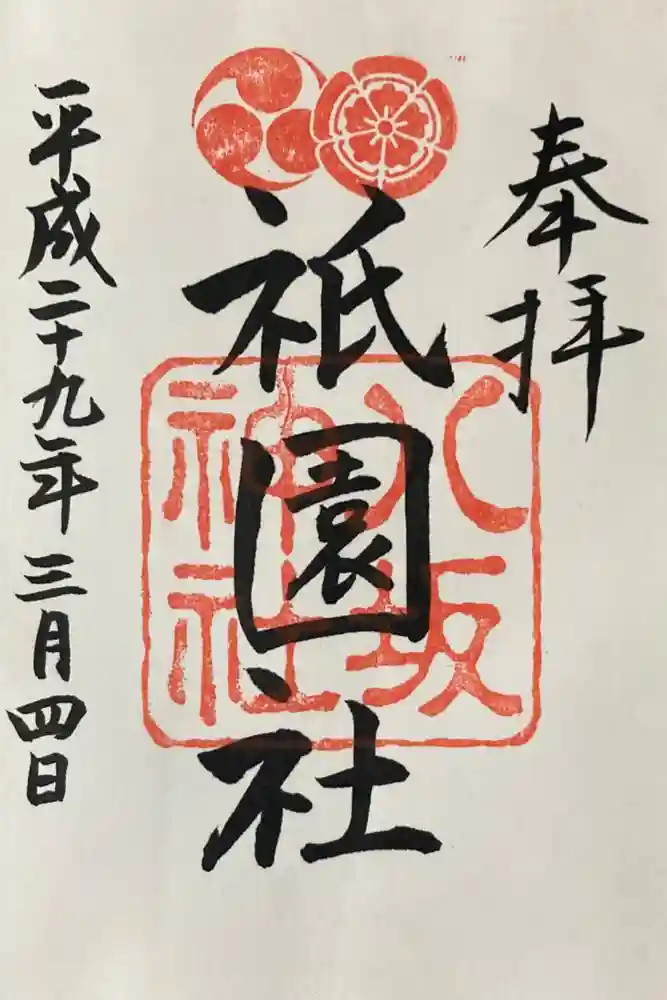 奉拝
祇園社
八坂
神社
平成二十九年三月四日